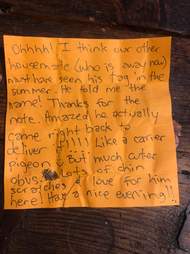 Ohhhh! I think our other
housemate (who is away now)
must have seen his tag in the
summer. He told me the
name! Thanks for the
note. Amazed he actually
came right back to
deliver it!!!! Like a carier
pigeon but much cuter
obvs. Lots of chin
scratches & love for him
here! Have a nice evening!!